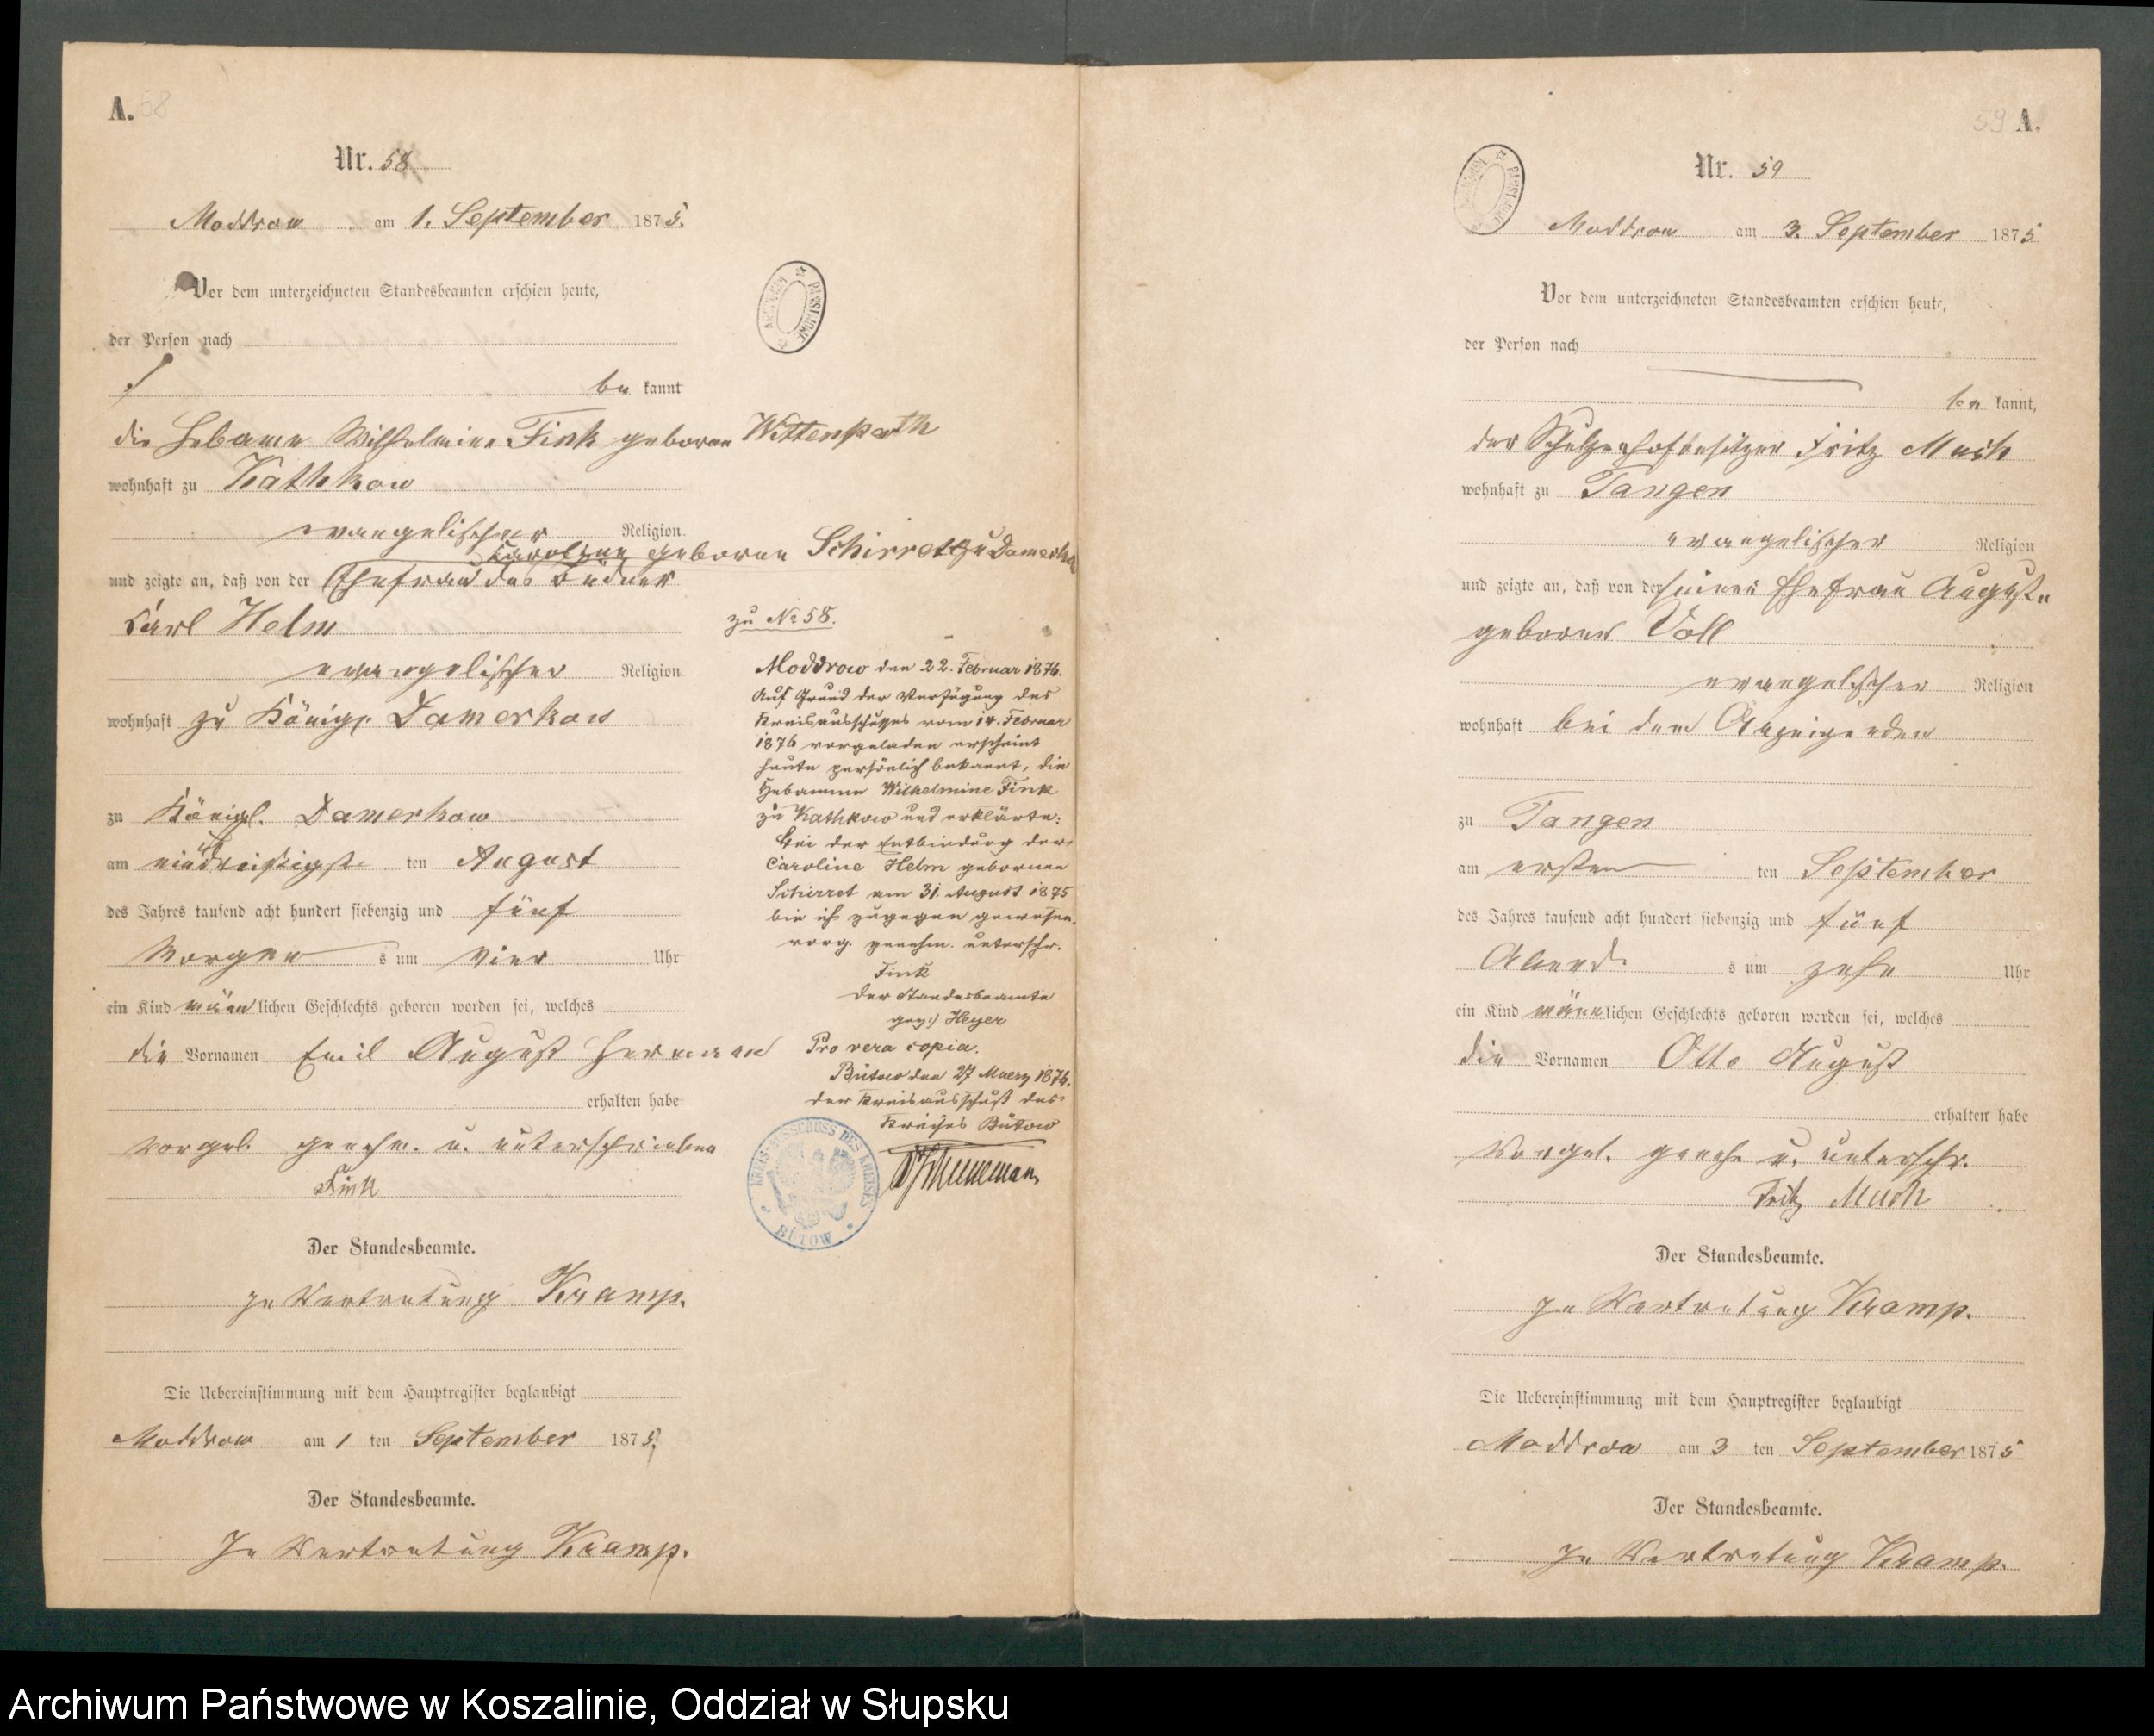 A. 58
Nr. 58
Moddrow am 1. September 1875.
Vor dem unterzeichneten Standesbeamten erschien heute,
der Person nach
be kannt
die Hebame Wilhelmine Fink geborne Wittenpoth
wohnhaft zu Kathkow
evangelischer Religion
Karoline geborne Schirrott zu Damerkow
und zeigte an, daß von der Ehefrau des Büdner
Karl Helm
evangelischer Religion
wohnhaft zu Königl. Damerkow
zu Königl. Damerkow
am einunddreißigste ten August
des Jahres tausend acht hundert siebenzig und fünf
Morgen s um vier Uhr
ein Kind männlichen Geschlechts geboren worden sei, welches
die Vornamen Emil August Hermann
erhalten habe
Vorgel. genehm. u. unterschrieben
Fink
Der Standesbeamte.
In Vertretung Kramp.
Die Uebereinstimmung mit dem Hauptregister beglaubigt
Moddrow am 1 ten September 1875.
Der Standesbeamte.
In Vertretung Kramp.
ARCHIWUM PAŃSTWOWE
zu No 58.
Moddrow den 22. Februar 1876.
Auf Grund der Verfügung des
Kreisausschusses vom 14. Februar
1876 vorgeladen erscheint
heute persönlich bekannt, die
Hebamme Wilhelmine Fink
zu Kathkow und erklärte:
Bei der Entbindung der
Caroline Helm geborenen
Schirret am 31. August 1875
bin ich zugegen gewesen.
vorg. genehm. unterschr.
Fink
Der Standesbeamte
gez:) Heyer
Pro vera copia.
Bütow den 27 Maerz 1876.
Der Kreisausschuß des
Kreises Bütow
KREIS-AUSSCHUSS DES KREISES BÜTOW
59 A.
Nr. 59
ARCHIWUM PAŃSTWOWE
Moddrow am 3. September 1875
Vor dem unterzeichneten Standesbeamten erschien heute,
der Person nach
be kannt,
der Schulzenhofbesitzer Fritz Mush
wohnhaft zu Tangen
evangelischer Religion
und zeigte an, daß von der seiner Ehefrau Auguste
geborne Voll
evangelischer Religion
wohnhaft bei dem Anzeigenden
zu Tangen
am ersten ten September
des Jahres tausend acht hundert siebenzig und fünf
Abend s um zehn Uhr
ein Kind männlichen Geschlechts geboren worden sei, welches
die Vornamen Otto August
erhalten habe
Vorgel. geneh. u. unterschr.
Fritz Mush
Der Standesbeamte.
In Vertretung Kramp.
Die Uebereinstimmung mit dem Hauptregister beglaubigt
Moddrow am 3 ten September 1875
Der Standesbeamte.
In Vertretung Kramp.
Archiwum Państwowe w Koszalinie, Oddział w Słupsku